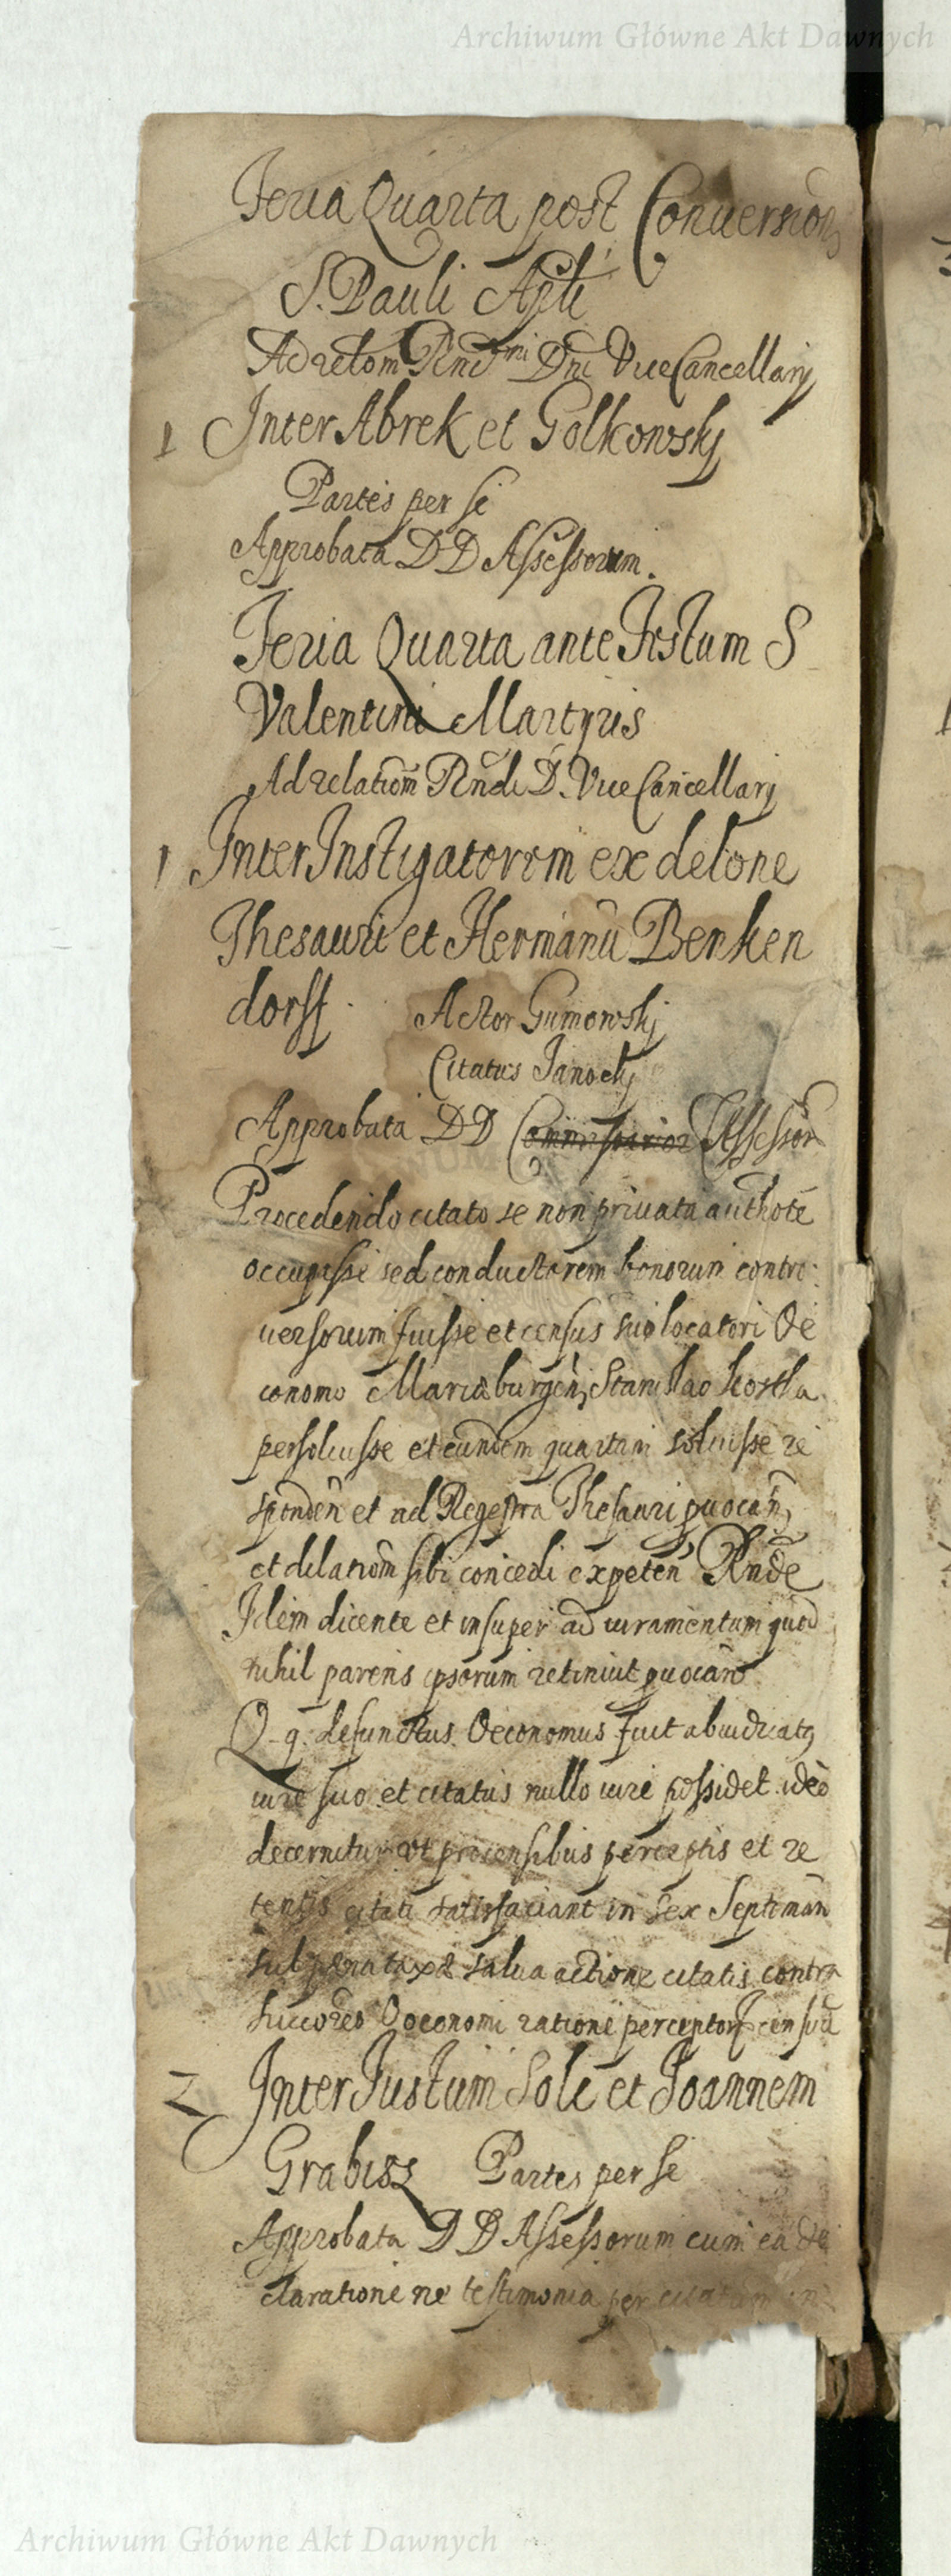 Archiwum Główne Akt Dawnych
Feria Quarta post Conversion
S. Pauli Apti
Ad relom Rndmi Dni ViceCancellarij
1 Inter Abrek et Golkowskj
Partes per se
Approbata DD Assessorum.
Feria Quarta ante Festum S
Valentini Martyris
Ad relationm Rndi D. ViceCancellarij
1 Inter Instigatorem ex delone
Thesauri et Hermanu Benken
dorff. Actor Gumowskj
Citatus Janockj
Approbata DD Assessor
Procedendo citato se non privata authote
occupasse sed conductorem bonorum contro
versorum fuisse et census suo locatori Oe
conomo Mariaeburgen, Stanislao Kostka
persoluisse et eundem quartam soluisse re
sponden et ad Regestra Thesauri quocan,
et dilationm sibi concedi expeten Rnde
Idem dicente et insuper ad iuramentum quod
nihil parens ipsorum retinuit quocan
Q. q. defunctus Oeconomus fuit abiudicatq
iure suo et citatus nullo iure possidet ideo
decernitur ut pro censibus perceptis et re
tentis citati satisfaciant in sex Septiman
sub paena salua actione citatis contra
Succores Oeconomi ratione perceptor censuu
2 Inter Justum Soli et Joannem
Grabisz Partes per se
Approbata DD Assessorum cum ea de
claratione ne testimonia per citatum in
Archiwum Główne Akt Dawnych